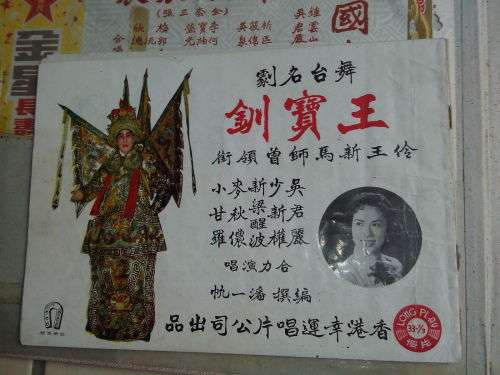 國
金星
長壽
舞台名劇
王寶釧
伶王新馬師曾領銜
吳君麗
少新權
新梁醒波
麥秋儂
小甘羅
合力演唱
編撰 潘一帆
香港幸運唱片公司出品
LONG PLAY
33-⅓
慢片